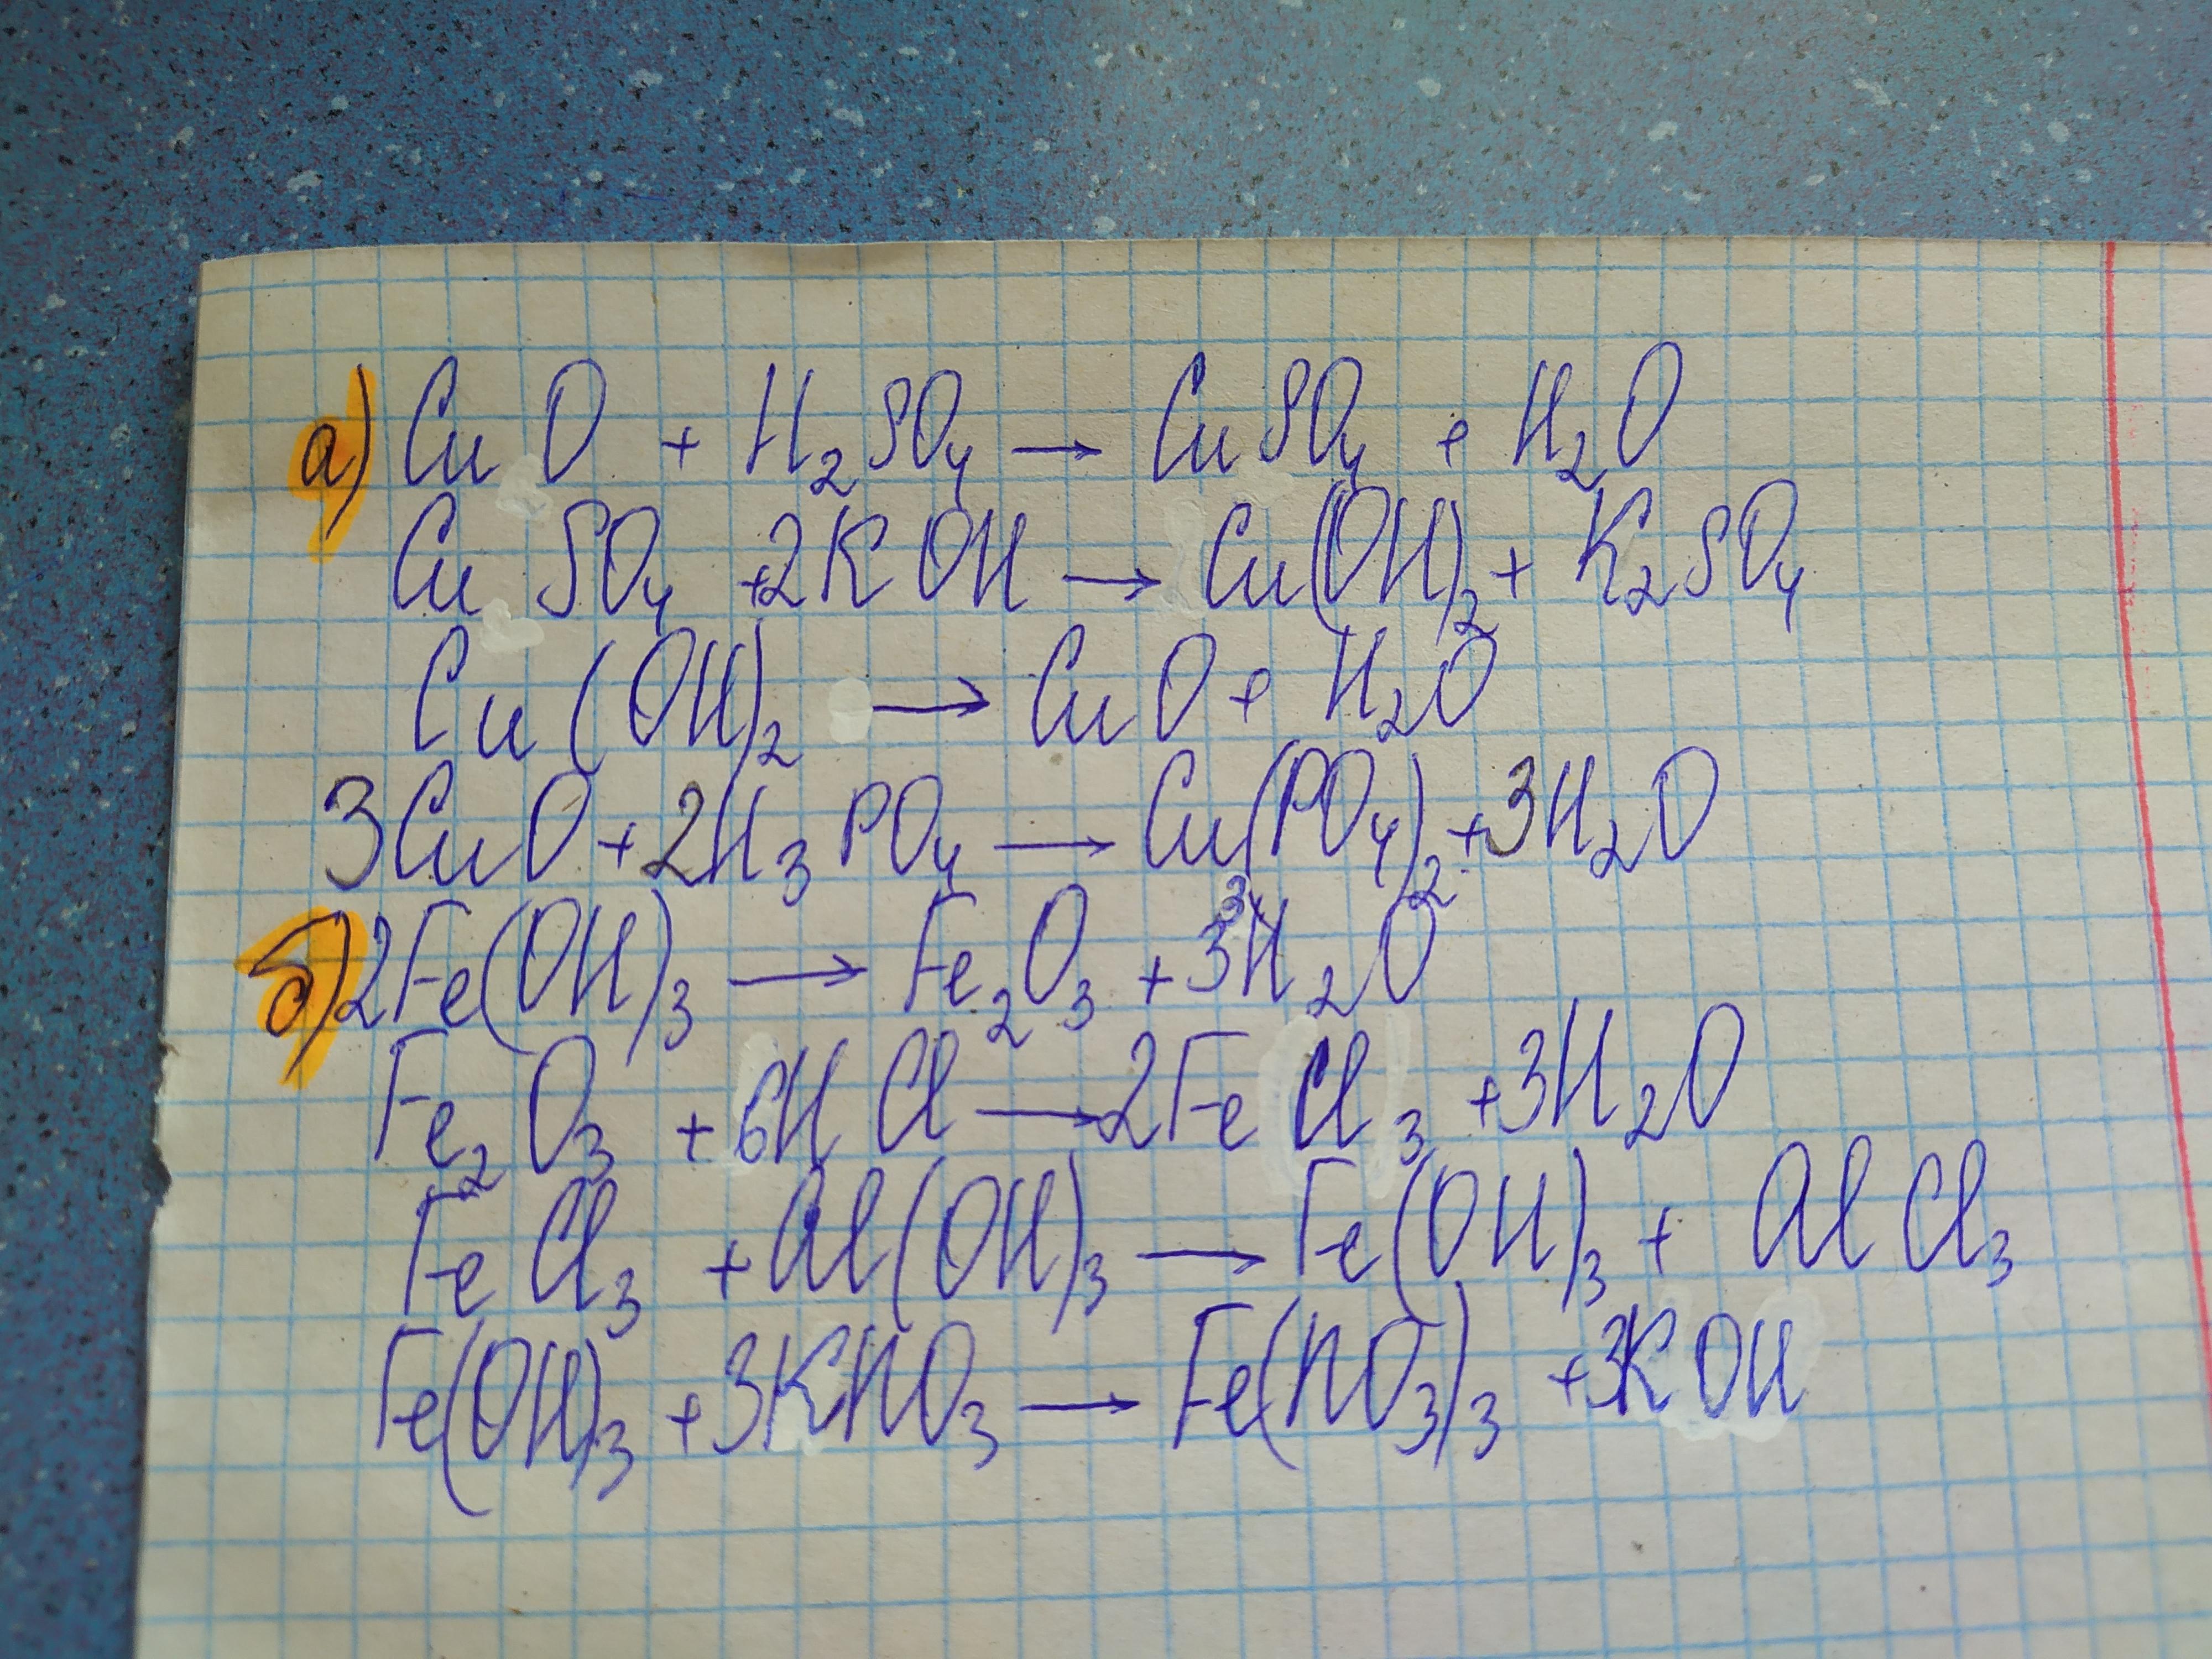 а) CuO + H₂SO₄ → CuSO₄ + H₂O
CuSO₄ + 2KOH → Cu(OH)₂ + K₂SO₄
Cu(OH)₂ → CuO + H₂O
3CuO + 2H₃PO₄ → Cu₃(PO₄)₂ + 3H₂O
б) 2Fe(OH)₃ → Fe₂O₃ + 3H₂O
Fe₂O₃ + 6HCl → 2FeCl₃ + 3H₂O
FeCl₃ + Al(OH)₃ → Fe(OH)₃ + AlCl₃
Fe(OH)₃ + 3KNO₃ → Fe(NO₃)₃ + 3KOH